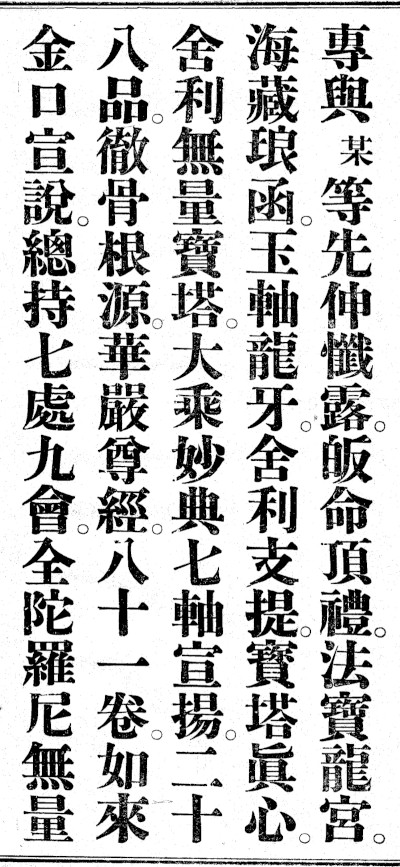 專與某等先伸懺露。皈命頂禮。法寶龍宮。
海藏琅函。玉軸龍牙。舍利支提。寶塔眞心。
舍利無量寶塔。大乘妙典七軸宣揚。二十
八品。徹骨根源。華嚴尊經。八十一卷。如來
金口宣說。總持七處九會。全陀羅尼無量